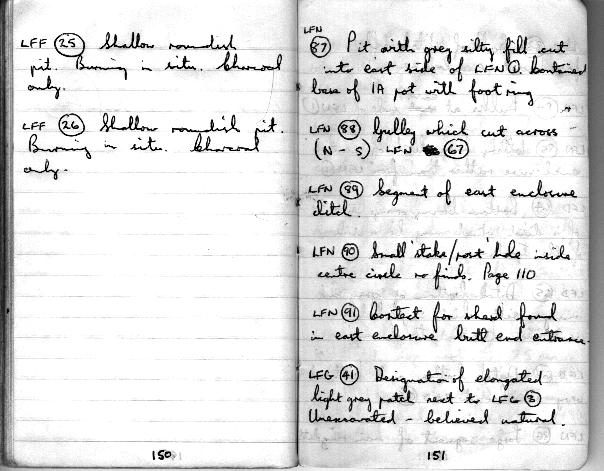 LFF 25 Shallow roundish
pit. Burning in situ. Charcoal
only.
LFF 26 Shallow roundish pit.
Burning in situ. Charcoal
only.
150
LFN
87 Pit with grey silty fill cut
into east side of LFN 1. Contained
base of IA pot with foot ring
LFN 88 Gulley which cut across
(N - S) LFN 67
LFN 89 Segment of east enclosure
ditch.
LFN 90 Small 'stake/post' hole inside
centre circle no finds. Page 110
LFN 91 Context for sherd found
in east enclosure butt end entrance.
LFG 41 Designation of elongated
light grey patch next to LFG 3
Unexcavated - believed natural.
151